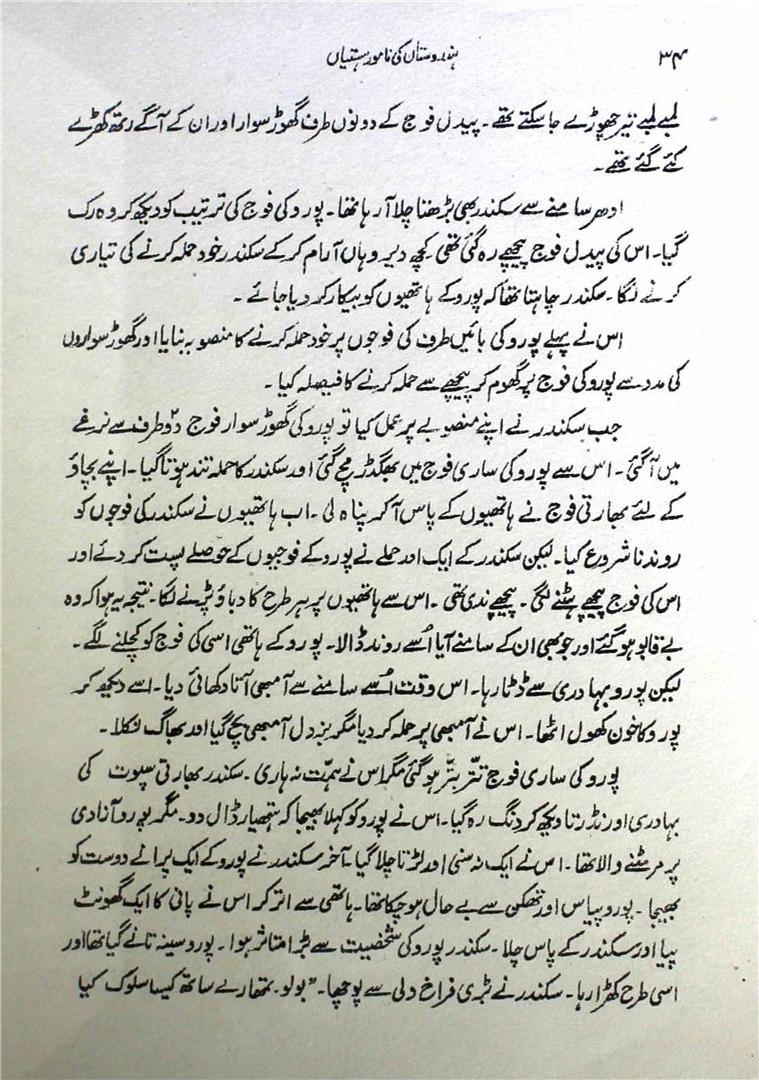 ۳۴
ہندوستان کی نامور ہستیاں
لمبے لمبے تیر چھوڑے جا سکتے تھے۔ پیدل فوج کے دونوں طرف گھوڑ سوار اور ان کے آگے رتھ کھڑے
کئے گئے تھے۔
ادھر سامنے سے سکندر بھی بڑھتا چلا آ رہا تھا۔ پورو کی فوج کی ترتیب کو دیکھ کر وہ رک
گیا۔ اس کی پیدل فوج پیچھے رہ گئی تھی کچھ دیر وہاں آرام کر کے سکندر خود حملہ کرنے کی تیاری
کرنے لگا۔ سکندر چاہتا تھا کہ پورو کے ہاتھیوں کو بیکار کر دیا جائے۔
اس نے پہلے پورو کی بائیں طرف کی فوجوں پر خود حملہ کرنے کا منصوبہ بنایا اور گھوڑ سواروں
کی مدد سے پورو کی فوج پر گھوم کر پیچھے سے حملہ کرنے کا فیصلہ کیا۔
جب سکندر نے اپنے منصوبے پر عمل کیا تو پورو کی گھوڑ سوار فوج دو طرف سے نرغے
میں آ گئی۔ اس سے پورو کی ساری فوج میں بھگدڑ مچ گئی اور سکندر کا حملہ تند ہوتا گیا۔ اپنے بچاؤ
کے لئے بھارتی فوج نے ہاتھیوں کے پاس آ کر پناہ لی۔ اب ہاتھیوں نے سکندر کی فوجوں کو
روندنا شروع کیا۔ لیکن سکندر کے ایک اور حملے نے پورو کے فوجیوں کے حوصلے پست کر دئے اور
اس کی فوج پیچھے ہٹنے لگی۔ پیچھے ندی تھی۔ اس سے ہاتھیوں پر ہر طرح کا دباؤ پڑنے لگا۔ نتیجہ یہ ہوا کہ وہ
بے قابو ہو گئے اور جو بھی ان کے سامنے آیا اُسے روند ڈالا۔ پورو کے ہاتھی اسی کی فوج کو کچلنے لگے۔
لیکن پورو بہادری سے ڈٹا رہا۔ اس وقت اُسے سامنے سے آمبھی آتا دکھائی دیا۔ اسے دیکھ کر
پورو کا خون کھول اٹھا۔ اس نے آمبھی پر حملہ کر دیا مگر بزدل آمبھی بچ گیا اور بھاگ نکلا۔
پورو کی ساری فوج تتّر بتّر ہو گئی مگر اس نے ہمّت نہ ہاری۔ سکندر بھارتی سپوت کی
بہادری اور نڈرتا دیکھ کر دنگ رہ گیا۔ اس نے پورو کو کہلا بھیجا کہ ہتھیار ڈال دو۔ مگر پورو آزادی
پر مر مٹنے والا تھا۔ اس نے ایک نہ سنی اور لڑتا چلا گیا۔ آخر سکندر نے پورو کے ایک پرانے دوست کو
بھیجا۔ پورو پیاس اور تھکن سے بے حال ہو چکا تھا۔ ہاتھی سے اتر کر اس نے پانی کا ایک گھونٹ
پیا اور سکندر کے پاس چلا۔ سکندر پورو کی شخصیت سے بڑا متاثر ہوا۔ پورو سینہ تانے گیا تھا اور
اسی طرح کھڑا رہا۔ سکندر نے بڑی فراخ دلی سے پوچھا۔ "بولو۔ تمھارے ساتھ کیسا سلوک کیا